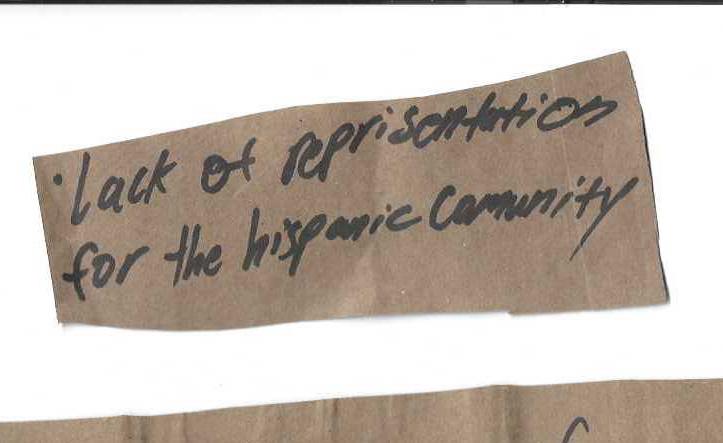 · Lack of reprisentation
for the hispanic Camunity